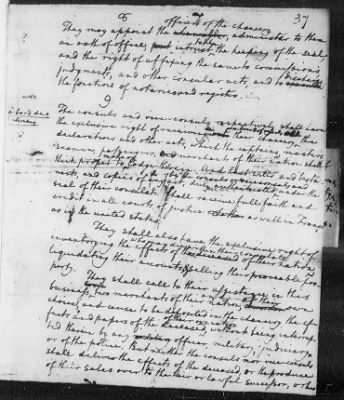 8
37
officers of the chancery
They may appoint the administer to them
an oath of office, intrust the keeping of the seal,
and the right of affixing the same to commissions
judgments, and other consular acts, and to discharge
the functions of notaries and register.
9.
The consuls and vice consuls respectively shall have
the exclusive right of receiving in their chancery, the
declarations and other acts, that the captains, masters
seamen, passengers, and merchants of their nation shall
think proper to lodge there. And last wills and
ments, and copies of the authenticated, under the
seal of their consulate shall receive full faith and
credit in all courts of justice as well in France
as in the united states.
They shall also have the exclusive right of
inventorying the effects of the deceased of their nation,
liquidating their accounts, selling their moveable pro-
perty.
They shall call to their assistance in this
business, two merchants of their nation of their own
choice, and cause to be deposited in the chancery, the ef-
fects and papers of the deceased without being interrup-
ted therein by any officer, military, judiciary,
or of the police. But neither the consuls nor vice consuls
shall deliver the effects of the deceased, or the produce
of their sales over to the heir or lawful successor, or